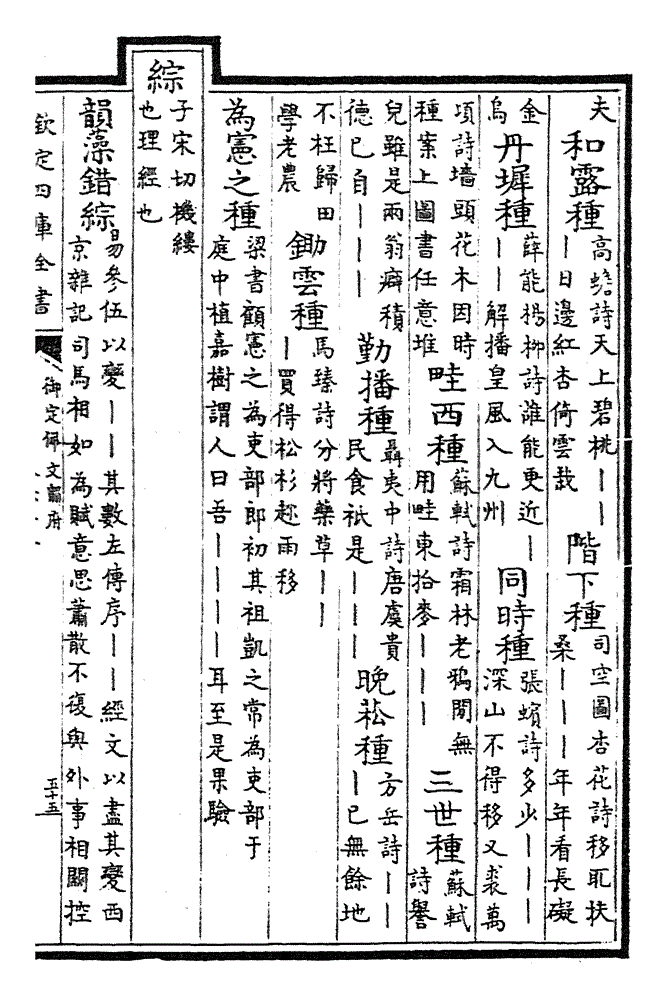 夫
和露種
高蟾詩天上碧桃｜｜
｜日邊紅杏倚雲栽
階下種
司空圖杏花詩移取扶
桑｜｜｜年年看長礙
金
烏
丹墀種
薛能楊柳詩誰能更近｜
｜｜解播皇風入九州
同時種
張蠙詩多少｜｜｜
深山不得移又裘萬
項詩墻頭花木因時
種案上圖書任意堆
畦西種
蘇軾詩霜林老鴉閒無
用畦東拾麥｜｜｜
三世種
蘇軾
詩譽
兒雖是兩翁癖積
德已自｜｜｜
勤播種
聶夷中詩唐虞貴
民食祇是｜｜｜
晚菘種
方岳詩｜｜
｜已無餘地
不枉歸田
學老農
鋤雲種
馬臻詩分將藥草｜｜
｜買得松杉趂雨移
為憲之種
梁書顧憲之為吏部郎初其祖凱之常為吏部于
庭中植嘉樹謂人曰吾｜｜｜｜耳至是果驗
綜
子宋切機縷
也理經也
韻藻錯綜
易參伍以變｜｜其數左傳序｜｜經文以盡其變西
京雜記司馬相如為賦意思蕭散不復與外事相關控
欽定四庫全書
御定佩文韻府
五十五